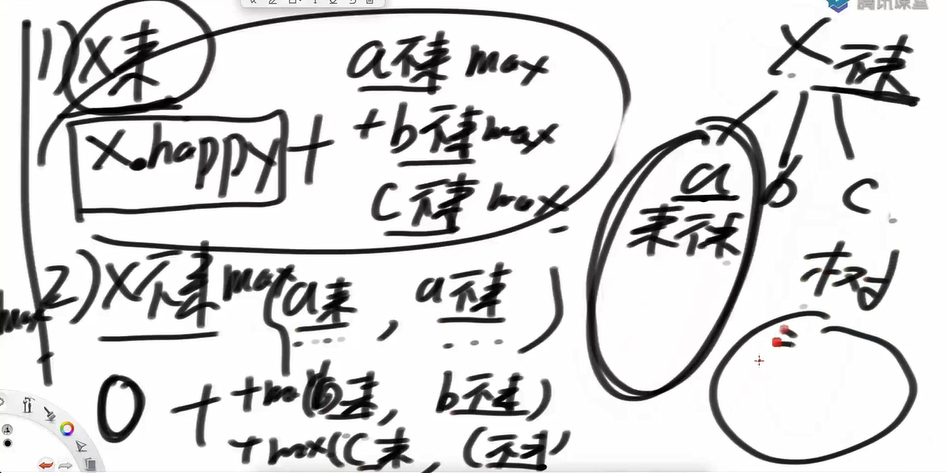 1) x来
x.happy +
a不来 max
+ b不来 max
c不来 max
2) x不来 max(a来, a不来)
0 + + m(b来, b不来)
+ max(c来, c不来)
x不来
a b c
来不来
树
腾讯课堂